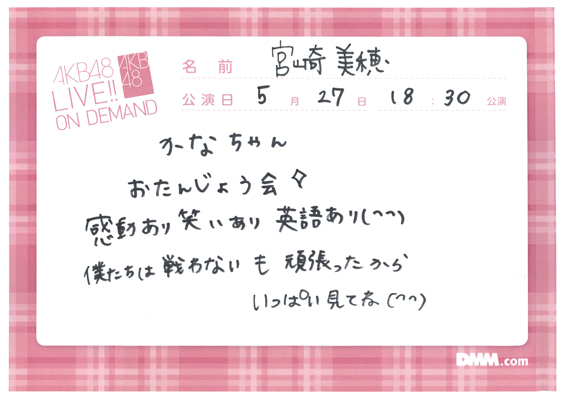 AKB48
LIVE!!
ON DEMAND
AKB
48
名前 宮崎美穂
公演日 5月27日 18:30公演
かなちゃん
おたんじょう会
感動あり笑いあり英語あり(^^)
僕たちは戦わないも頑張ったから
いっぱい見てな(^^)
DMM.com